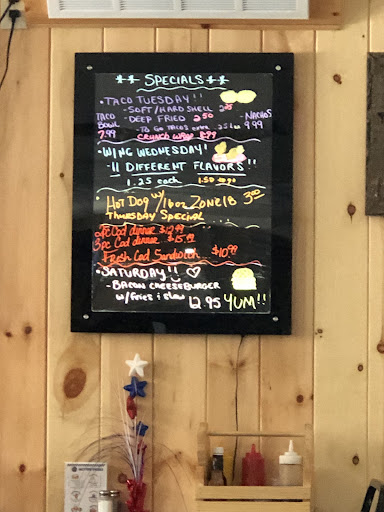 ** SPECIALS **
• TACO TUESDAY!!
- SOFT/HARD SHELL 2.25
TACO BOWL 7.99
- DEEP FRIED 2.50
- NACHOS 9.99
- TO GO TACOS extra .25¢ ea
CRUNCH WRAP 8.99
• WING WEDNESDAY!
- 11 DIFFERENT FLAVORS!!
1.25 each 1.50 to go
• HOT DOG w/ 16oz ZONE 1B 3.00
THURSDAY SPECIAL
2pc Cod dinner $12.99
3pc Cod dinner $15.49
Fresh Cod Sandwich $10.99
• SATURDAY!!
- BACON CHEESEBURGER
w/fries & slaw 12.95 YUM!!